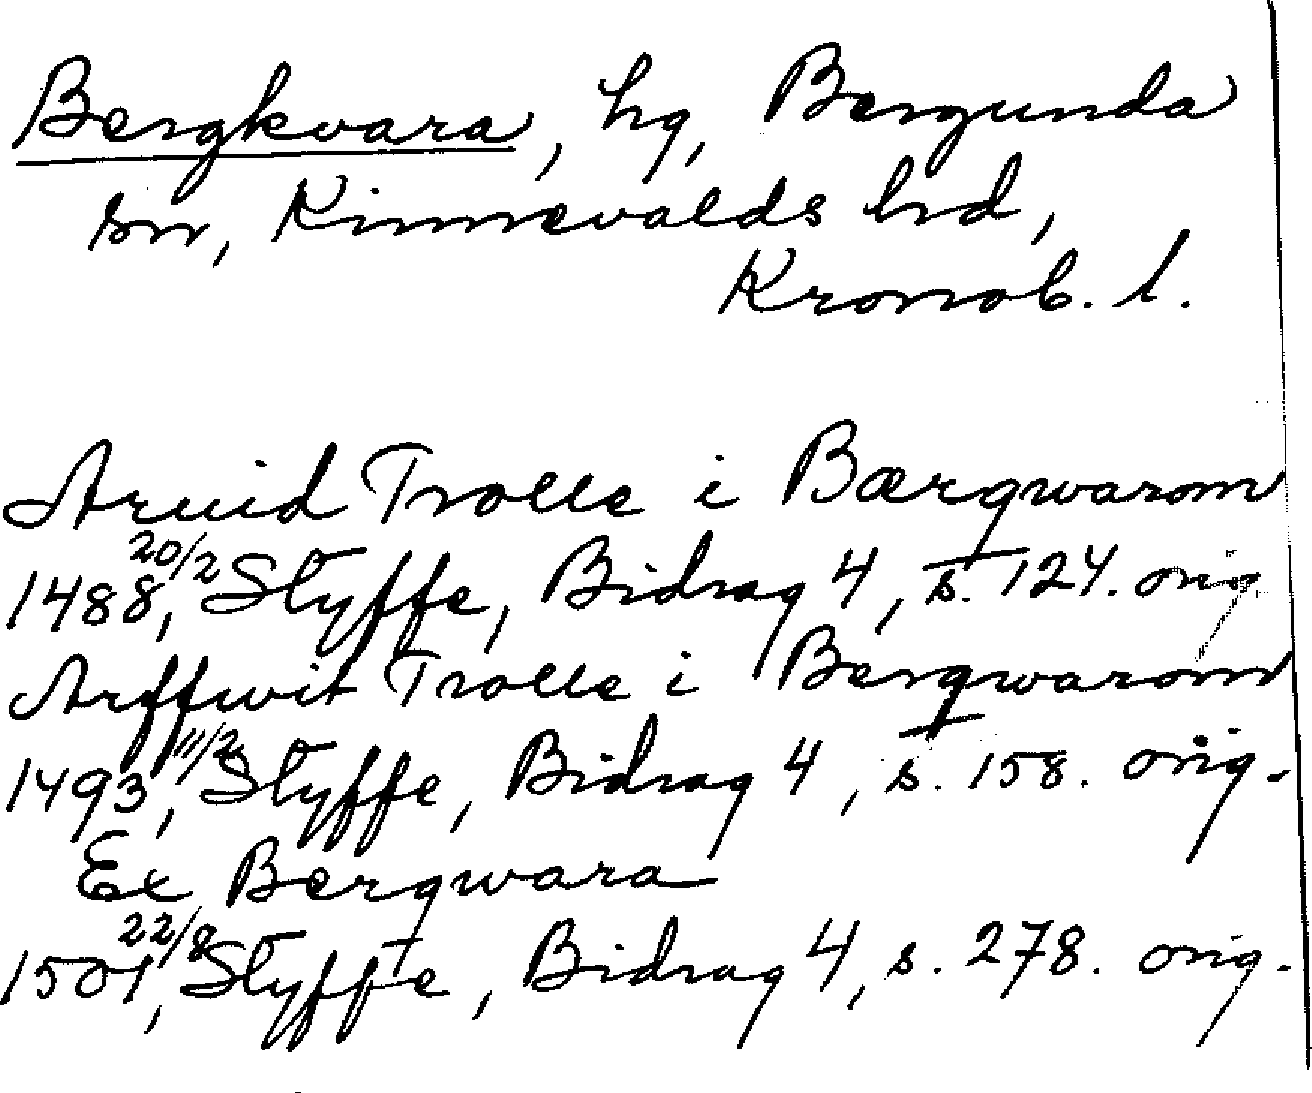 Bergkvara, hg, Bergunda
sn, Kinnevalds hd,
Kronob. l.
Aruid Trolle i Bærgwarom
1488 20/2, Styffe, Bidrag 4, s. 124. orig.
Arffwit Trolle i Bergwarom
1493 11/2, Styffe, Bidrag 4, s. 158. orig.
Ex Bergwara
1501 22/8, Styffe, Bidrag 4, s. 278. orig.